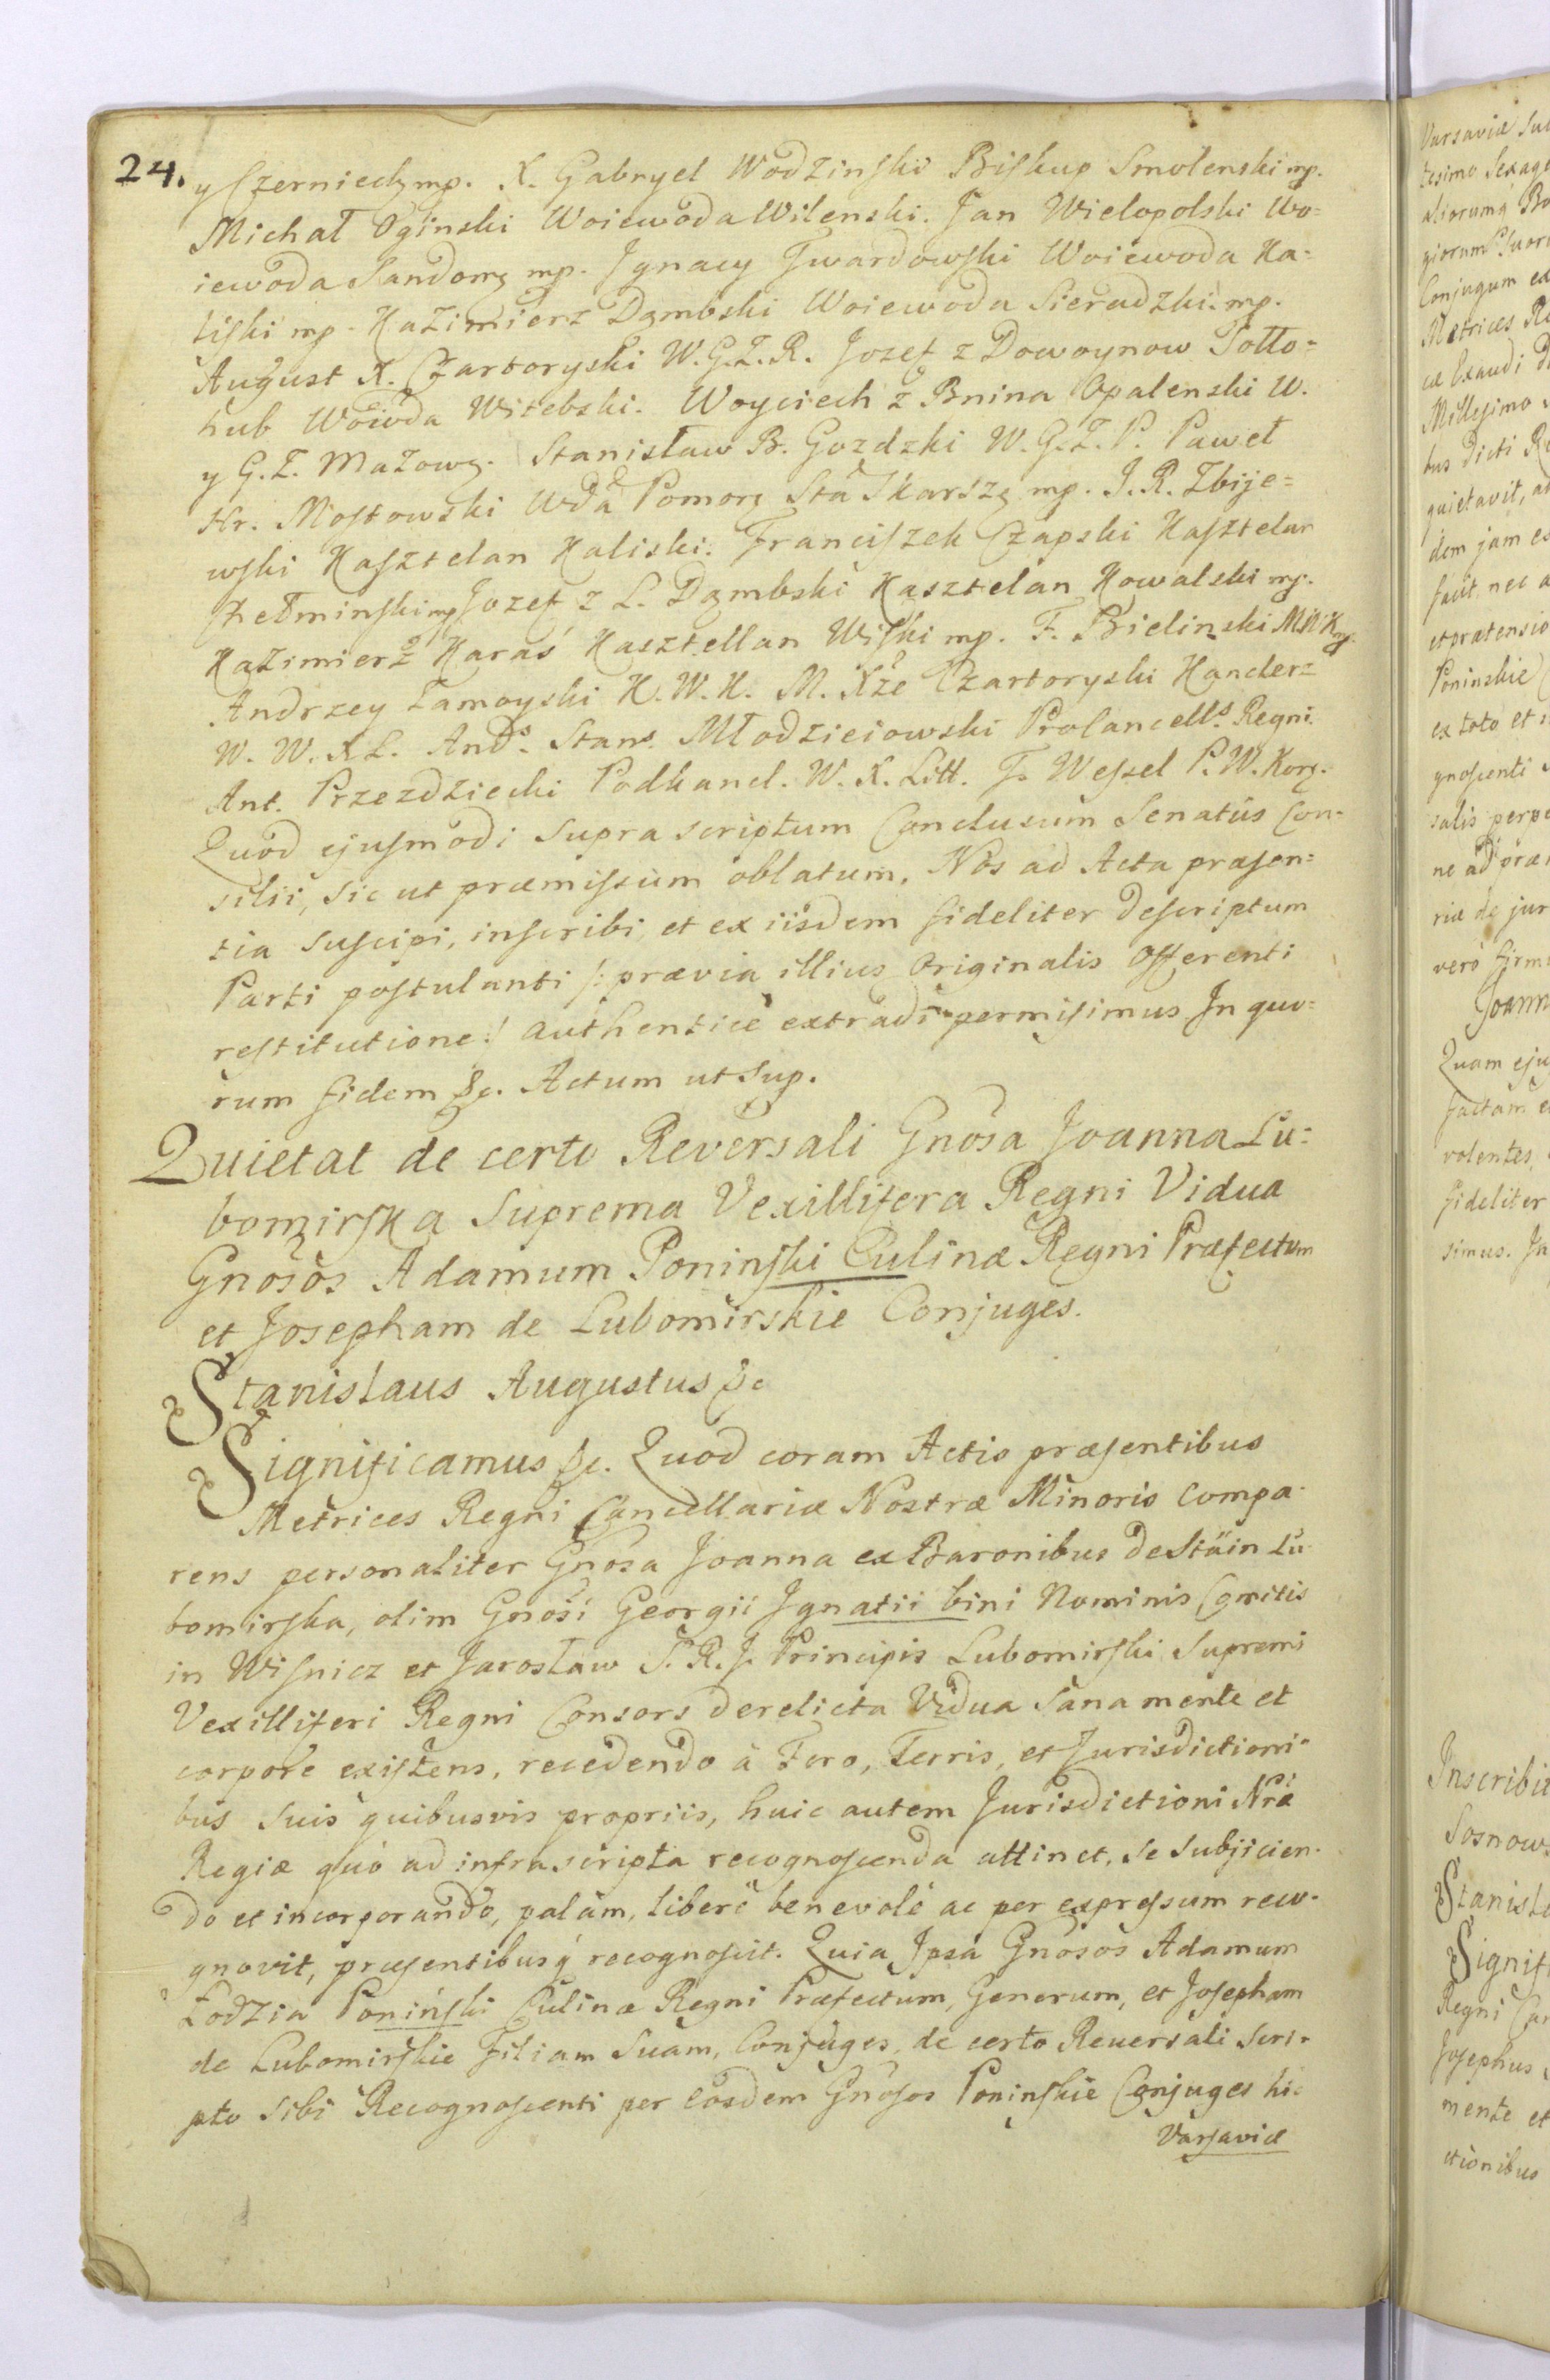 24.
y Czerniech mp. X. Gabryel Wodzinski Biskup Smolenski mp.
Michał Oginski Woiewoda Wilenski. Jan Wielopolski Wo=
iewoda Sandomz mp. Jgnacy Twardowski Woiewoda Ka=
liski mp. Kazimierz Dąmbski Woiewoda Sieradzki. mp.
August X. Czartoryski W. G. Z. R. Jozef z Dowoynow Sołło=
hub Woiwda Witebski. Woyciech z Bnina Opalenski W.
y G. Z. Mazowz. Stanisław B. Gozdzki W. G. Z. P. Paweł
Hr. Mostowski Wda Pomorz Sta Skarszz mp. J. R. Zbije=
wski Kasztelan Kaliski. Franciszek Czapski Kasztelan
Chełminski mp Jozef z L. Dąmbski Kasztelan Kowalski mp.
Kazimierz Karaś Kasztellan Wiski mp. F. Bielinski M. W. K mp.
Andrzey Zamoyski K. W. K. M. Xże Czartoryski Kanclerz
W. W. X L. Ands. Stans. Młodzieiowski Procancells Regni
Ant. Przezdziecki Podkancl. W. X. Litt. T. Wessel P. W. Korz.
Quod ejusmodi supra scriptum Conclusum Senatûs Con=
silii, sic ut præmissum oblatum, Nos ad Acta præsen=
tia suscipi, inscribi, et ex iisdem fideliter descriptum
Parti postulanti /: prævia illius Originalis Offerenti
restitutione :/ authenticè extradi permisimus Jn quo=
rum fidem &c. Actum ut sup.
Quietat de certo Reversali Gnosa Joanna Lu=
bomirska Suprema Vexillifera Regni Vidua
Gnosos Adamum Poninski Culinæ Regni Præfectum
et Josepham de Lubomirskie Conjuges.
Stanislaus Augustus &c
Significamus &c. Quod coram Actis præsentibus
Metrices Regni Cancellariæ Nostræ Minoris Compa-
rens personaliter Gnosa Joanna ex Baronibus de Stäin Lu-
bomirska, olim Gnosi Georgii Jgnatii bini Nominis Comitis
in Wisnicz et Jarosław S. R. J. Principis Lubomirski Supremi
Vexilliferi Regni Consors derelicta Vidua Sana mente et
corpore existens, recedendo à Foro, Terris, et Jurisdictioni-
bus suis quibusvis propriis, huic autem Jurisdictioni Nræ
Regiæ quò ad infrascripta recognoscenda attinet, se subjicien-
do et incorporando, palàm, liberè benevolè ac per expressum reco-
gnovit, præsentibusq recognoscit. Quia Jpsa Gnosos Adamum
Łodzia Poniński Culinæ Regni Præfectum, Generum, et Josepham
de Lubomirskie Filiam Suam, Conjuges, de certo Reversali Scri-
pto sibi Recognoscenti per eosdem Gnosos Poninskie Conjuges hic
Varsaviæ
Varsaviæ
tesimo Sexage
aliorumq
giorum
Conjugum ex
Metrices
Millesimo
bus dicti
quietavit, 
dem jam
facit nec a
et prætensio
Poninskie
ex toto et
gnoscenti
salis perpe
ne ad
riæ de jur
verò firm
Joann
Quam eju
factam
volentes,
fideliter
simus. Jn
Jnscribit
Sosnow
Stanisl
Signif
Regni Can
Josephus
mente et
ctionibus